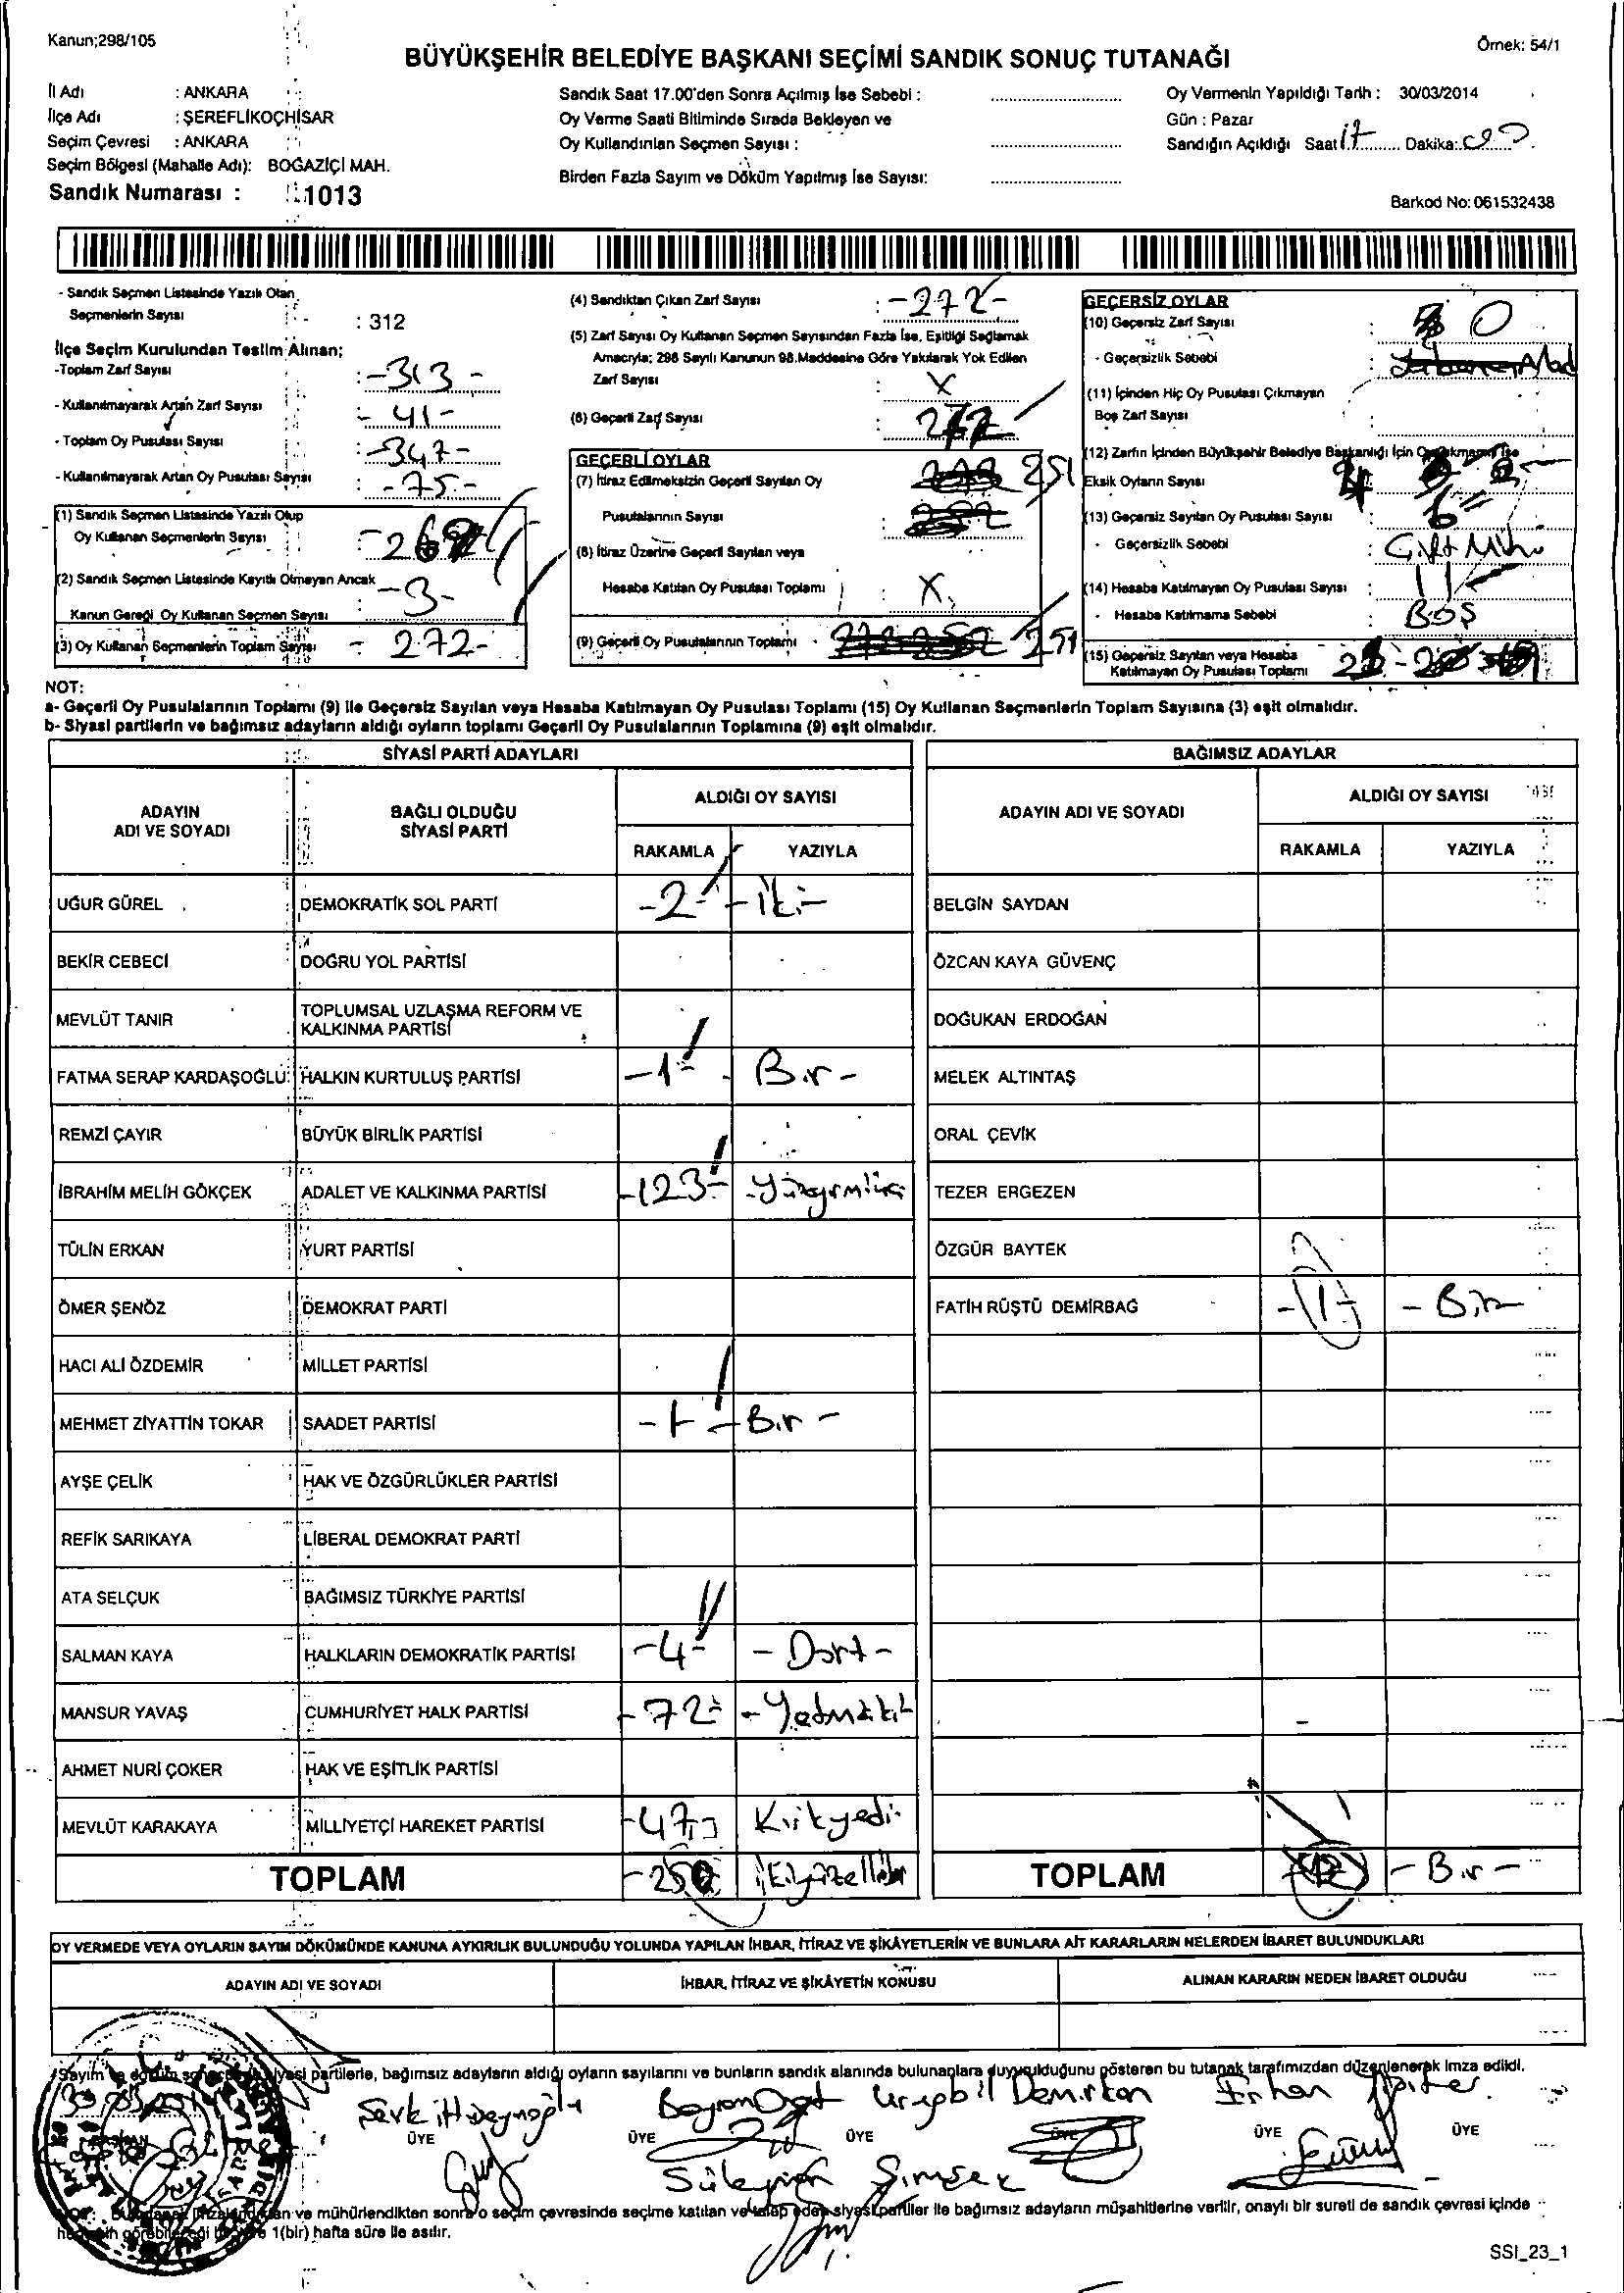 Kanun;298/105
Örnek: 54/1
BÜYÜKŞEHİR BELEDİYE BAŞKANI SEÇİMİ SANDIK SONUÇ TUTANAĞI
İl Adı : ANKARA
İlçe Adı : ŞEREFLİKOÇHİSAR
Seçim Çevresi : ANKARA
Seçim Bölgesi (Mahalle Adı): BOĞAZİÇİ MAH.
Sandık Numarası : 1013
Sandık Saat 17.00'den Sonra Açılmış İse Sebebi :
Oy Verme Saati Bitiminde Sırada Bekleyen ve
Oy Kullandırılan Seçmen Sayısı :
Birden Fazla Sayım ve Döküm Yapılmış İse Sayısı:
Oy Vermenin Yapıldığı Tarih : 30/03/2014
Gün : Pazar
Sandığın Açıldığı Saat 17 Dakika:
Barkod No: 061532438
- Sandık Seçmen Listesinde Yazılı Olan
Seçmenlerin Sayısı : 312
İlçe Seçim Kurulundan Teslim Alınan;
-Toplam Zarf Sayısı : -313-
- Kullanılmayarak Artan Zarf Sayısı : - 41-
- Toplam Oy Pusulası Sayısı : -347-
- Kullanılmayarak Artan Oy Pusulası Sayısı : -75-
(1) Sandık Seçmen Listesinde Yazılı Olup
Oy Kullanan Seçmenlerin Sayısı
(2) Sandık Seçmen Listesinde Kayıtlı Olmayan Ancak
Kanun Gereği Oy Kullanan Seçmen Sayısı : -3-
(3) Oy Kullanan Seçmenlerin Toplam Sayısı : - 272-
(4) Sandıktan Çıkan Zarf Sayısı : -272-
(5) Zarf Sayısı Oy Kullanan Seçmen Sayısından Fazla İse, Eşitliği Sağlamak
Amacıyla; 298 Sayılı Kanunun 98.Maddesine Göre Yakılarak Yok Edilen
Zarf Sayısı : X
(6) Geçerli Zarf Sayısı : 272
GEÇERLİ OYLAR
(7) İtiraz Edilmeksizin Geçerli Sayılan Oy 251
Pusulalarının Sayısı :
(8) İtiraz Üzerine Geçerli Sayılan veya
Hesaba Katılan Oy Pusulası Toplamı : X
(9) Geçerli Oy Pusulalarının Toplamı 251
GEÇERSİZ OYLAR
(10) Geçersiz Zarf Sayısı : 0
- Geçersizlik Sebebi :
(11) İçinden Hiç Oy Pusulası Çıkmayan
Boş Zarf Sayısı :
(12) Zarfın İçinden Büyükşehir Belediye Başkanlığı İçin Oy Çıkmamış İse
Eksik Oyların Sayısı
(13) Geçersiz Sayılan Oy Pusulası Sayısı : 6
- Geçersizlik Sebebi : Çift Mühü
(14) Hesaba Katılmayan Oy Pusulası Sayısı : 11
- Hesaba Katılmama Sebebi : BOŞ
(15) Geçersiz Sayılan veya Hesaba
Katılmayan Oy Pusulası Toplamı :
NOT:
a- Geçerli Oy Pusulalarının Toplamı (9) ile Geçersiz Sayılan veya Hesaba Katılmayan Oy Pusulası Toplamı (15) Oy Kullanan Seçmenlerin Toplam Sayısına (3) eşit olmalıdır.
b- Siyasi partilerin ve bağımsız adayların aldığı oyların toplamı Geçerli Oy Pusulalarının Toplamına (9) eşit olmalıdır.
SİYASİ PARTİ ADAYLARI
ADAYIN ADI VE SOYADI
BAĞLI OLDUĞU SİYASİ PARTİ
ALDIĞI OY SAYISI
RAKAMLA YAZIYLA
UĞUR GÜREL DEMOKRATİK SOL PARTİ -2- -iki-
BEKİR CEBECİ DOĞRU YOL PARTİSİ
MEVLÜT TANIR TOPLUMSAL UZLAŞMA REFORM VE KALKINMA PARTİSİ
FATMA SERAP KARDAŞOĞLU HALKIN KURTULUŞ PARTİSİ -1- Bir-
REMZİ ÇAYIR BÜYÜK BİRLİK PARTİSİ
İBRAHİM MELİH GÖKÇEK ADALET VE KALKINMA PARTİSİ -123-
TÜLİN ERKAN YURT PARTİSİ
ÖMER ŞENÖZ DEMOKRAT PARTİ
HACI ALİ ÖZDEMİR MİLLET PARTİSİ
MEHMET ZİYATTİN TOKAR SAADET PARTİSİ -1- -Bir-
AYŞE ÇELİK HAK VE ÖZGÜRLÜKLER PARTİSİ
REFİK SARIKAYA LİBERAL DEMOKRAT PARTİ
ATA SELÇUK BAĞIMSIZ TÜRKİYE PARTİSİ
SALMAN KAYA HALKLARIN DEMOKRATİK PARTİSİ -4- -Dört-
MANSUR YAVAŞ CUMHURİYET HALK PARTİSİ -72- -Yetmişiki-
AHMET NURİ ÇOKER HAK VE EŞİTLİK PARTİSİ
MEVLÜT KARAKAYA MİLLİYETÇİ HAREKET PARTİSİ -47- Kırkyedi-
TOPLAM -250 İkiyüzelli
BAĞIMSIZ ADAYLAR
ADAYIN ADI VE SOYADI
ALDIĞI OY SAYISI
RAKAMLA YAZIYLA
BELGİN SAYDAN
ÖZCAN KAYA GÜVENÇ
DOĞUKAN ERDOĞAN
MELEK ALTINTAŞ
ORAL ÇEVİK
TEZER ERGEZEN
ÖZGÜR BAYTEK
FATİH RÜŞTÜ DEMİRBAĞ -1- - Bir-
TOPLAM - Bir -
OY VERMEDE VEYA OYLARIN SAYIM DÖKÜMÜNDE KANUNA AYKIRILIK BULUNDUĞU YOLUNDA YAPILAN İHBAR, İTİRAZ VE ŞİKÂYETLERİN VE BUNLARA AİT KARARLARIN NELERDEN İBARET BULUNDUKLARI
ADAYIN ADI VE SOYADI İHBAR, İTİRAZ VE ŞİKÂYETİN KONUSU ALINAN KARARIN NEDEN İBARET OLDUĞU
Sayım siyasi partilerle, bağımsız adayların aldığı oyların sayılarını ve bunların sandık alanında bulunanlara duyurulduğunu gösteren bu tutanak tarafımızdan düzenlenerek imza edildi.
Demirkan Erhan
ÜYE ÜYE ÜYE ÜYE ÜYE ÜYE
Süleyman Şimşek
ve mühürlendikten sonra o seçim çevresinde seçime katılan ve talep eden siyasi partiler ile bağımsız adayların müşahitlerine verilir, onaylı bir sureti de sandık çevresi içinde
görebileceği 1(bir) hafta süre ile asılır.
SSI_23_1